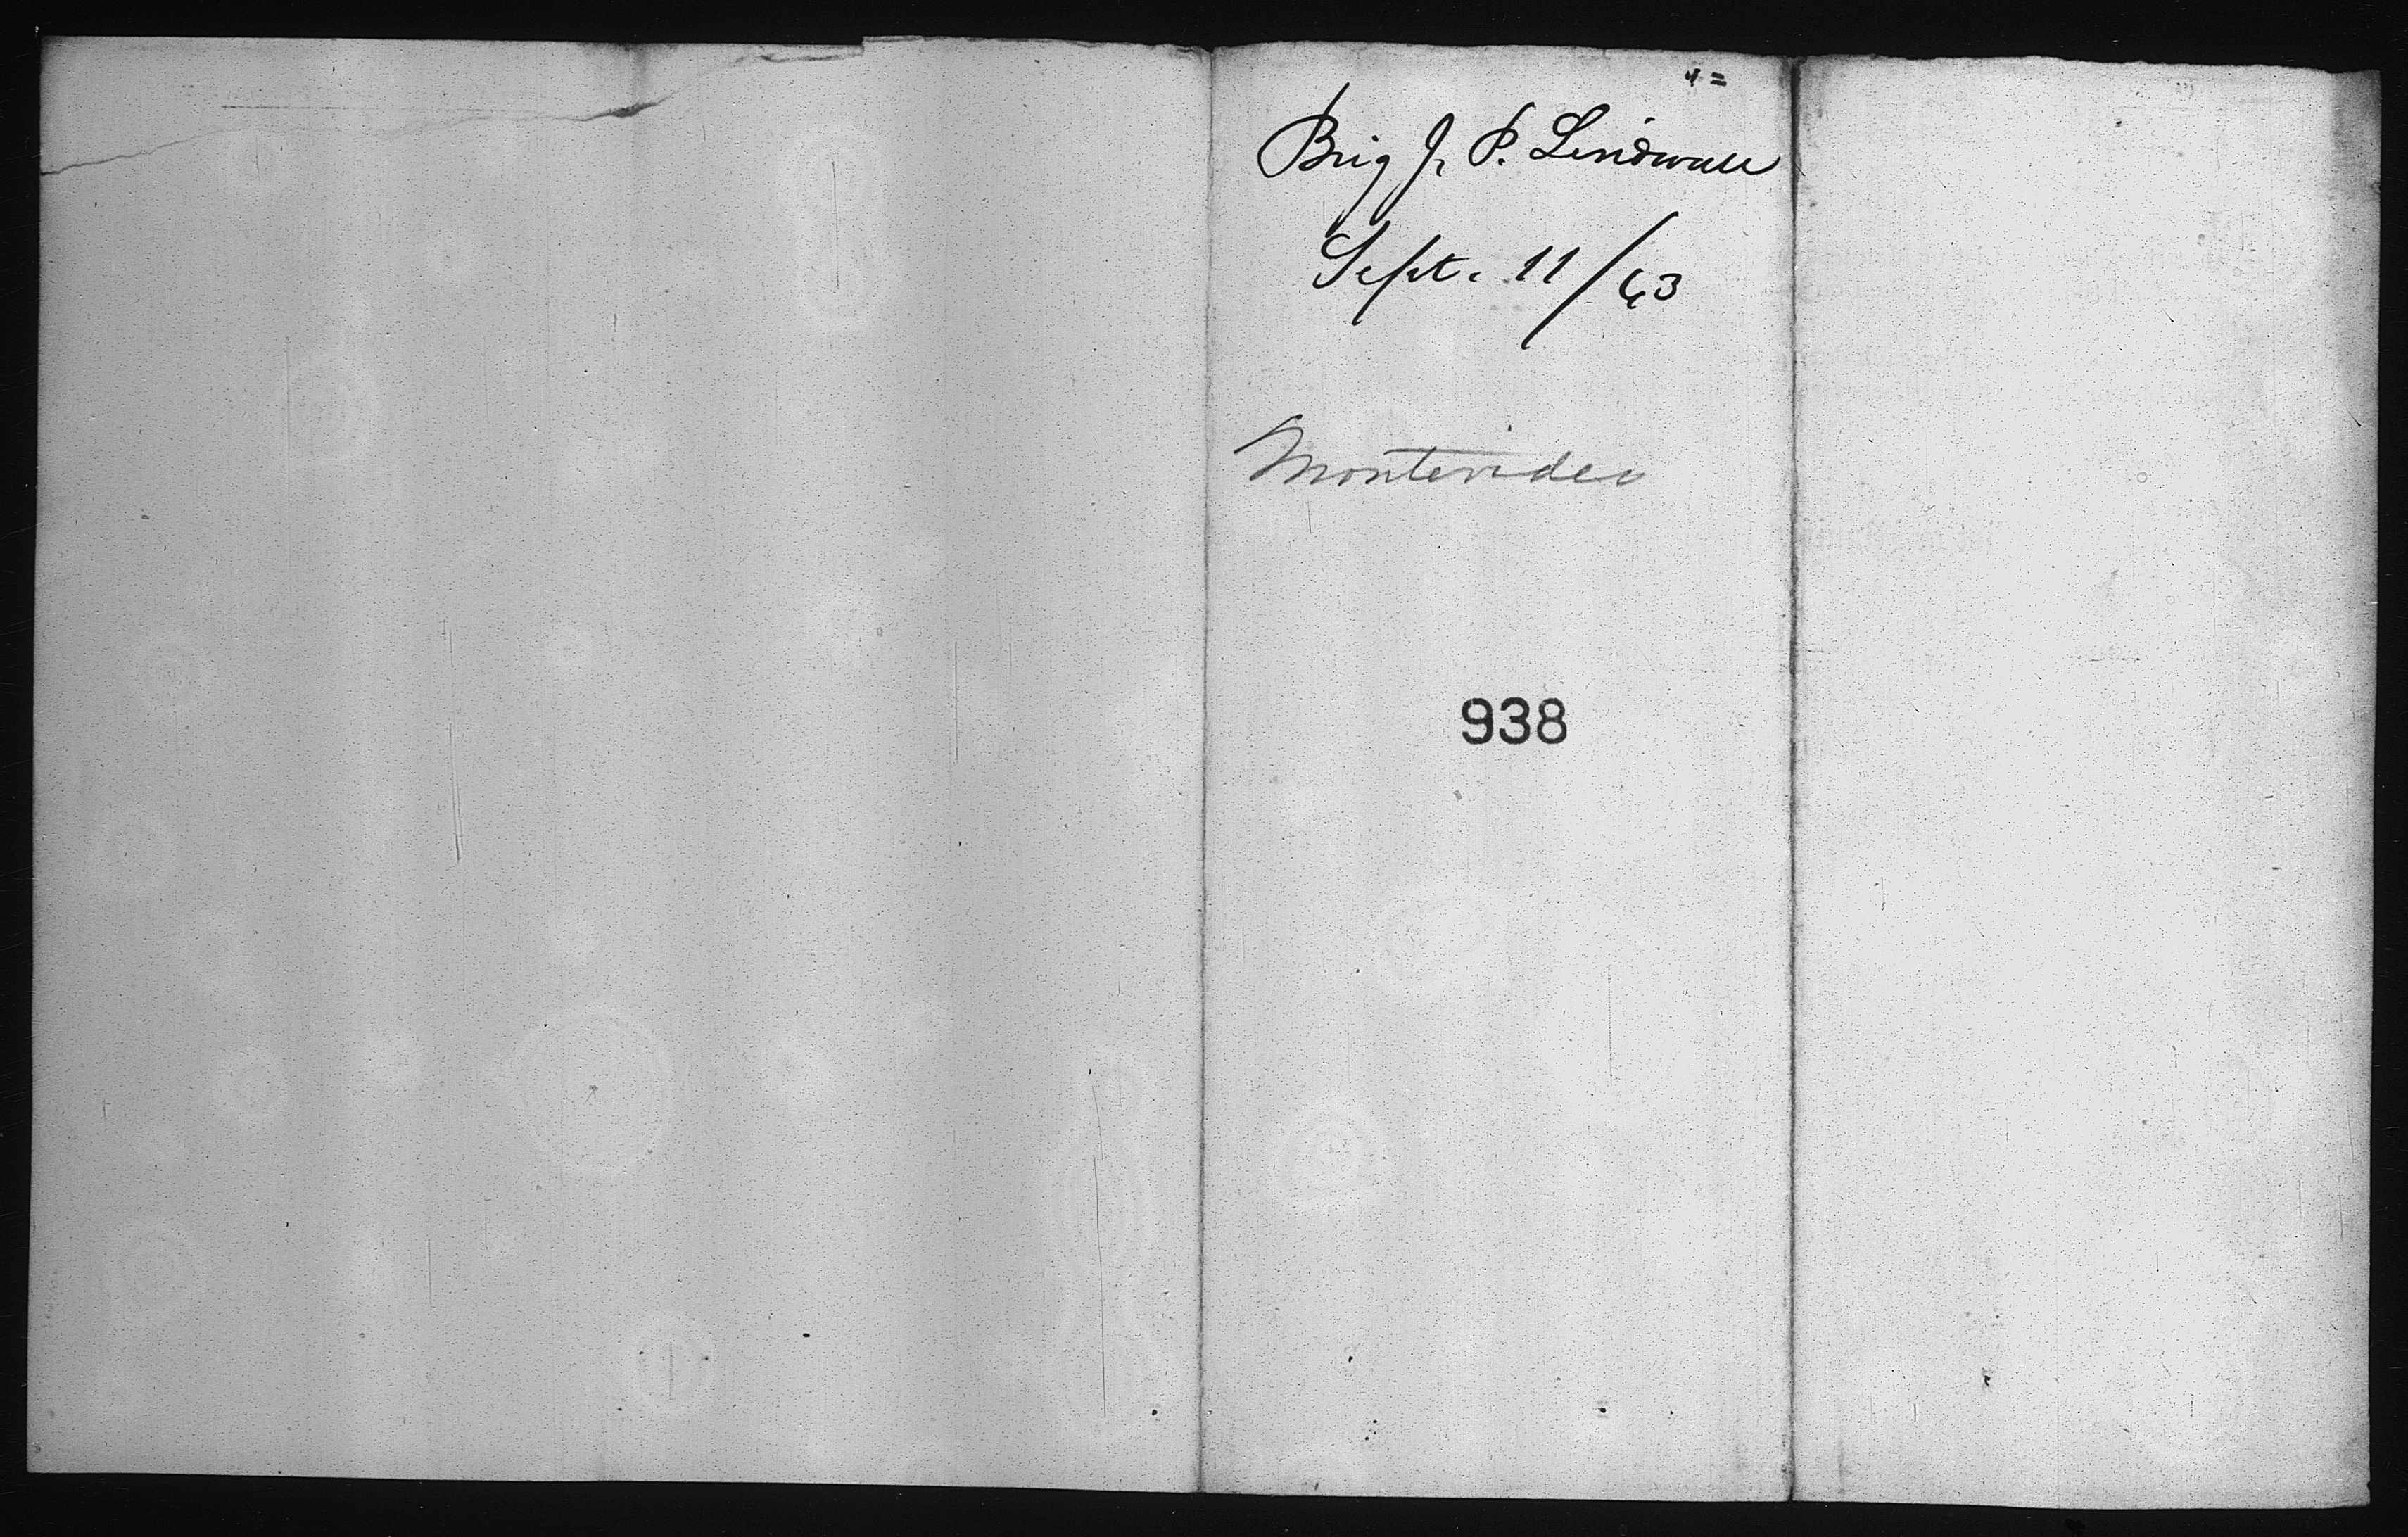 Brig J. P. Lindwall
Sept. 11/63
Montevideo
938